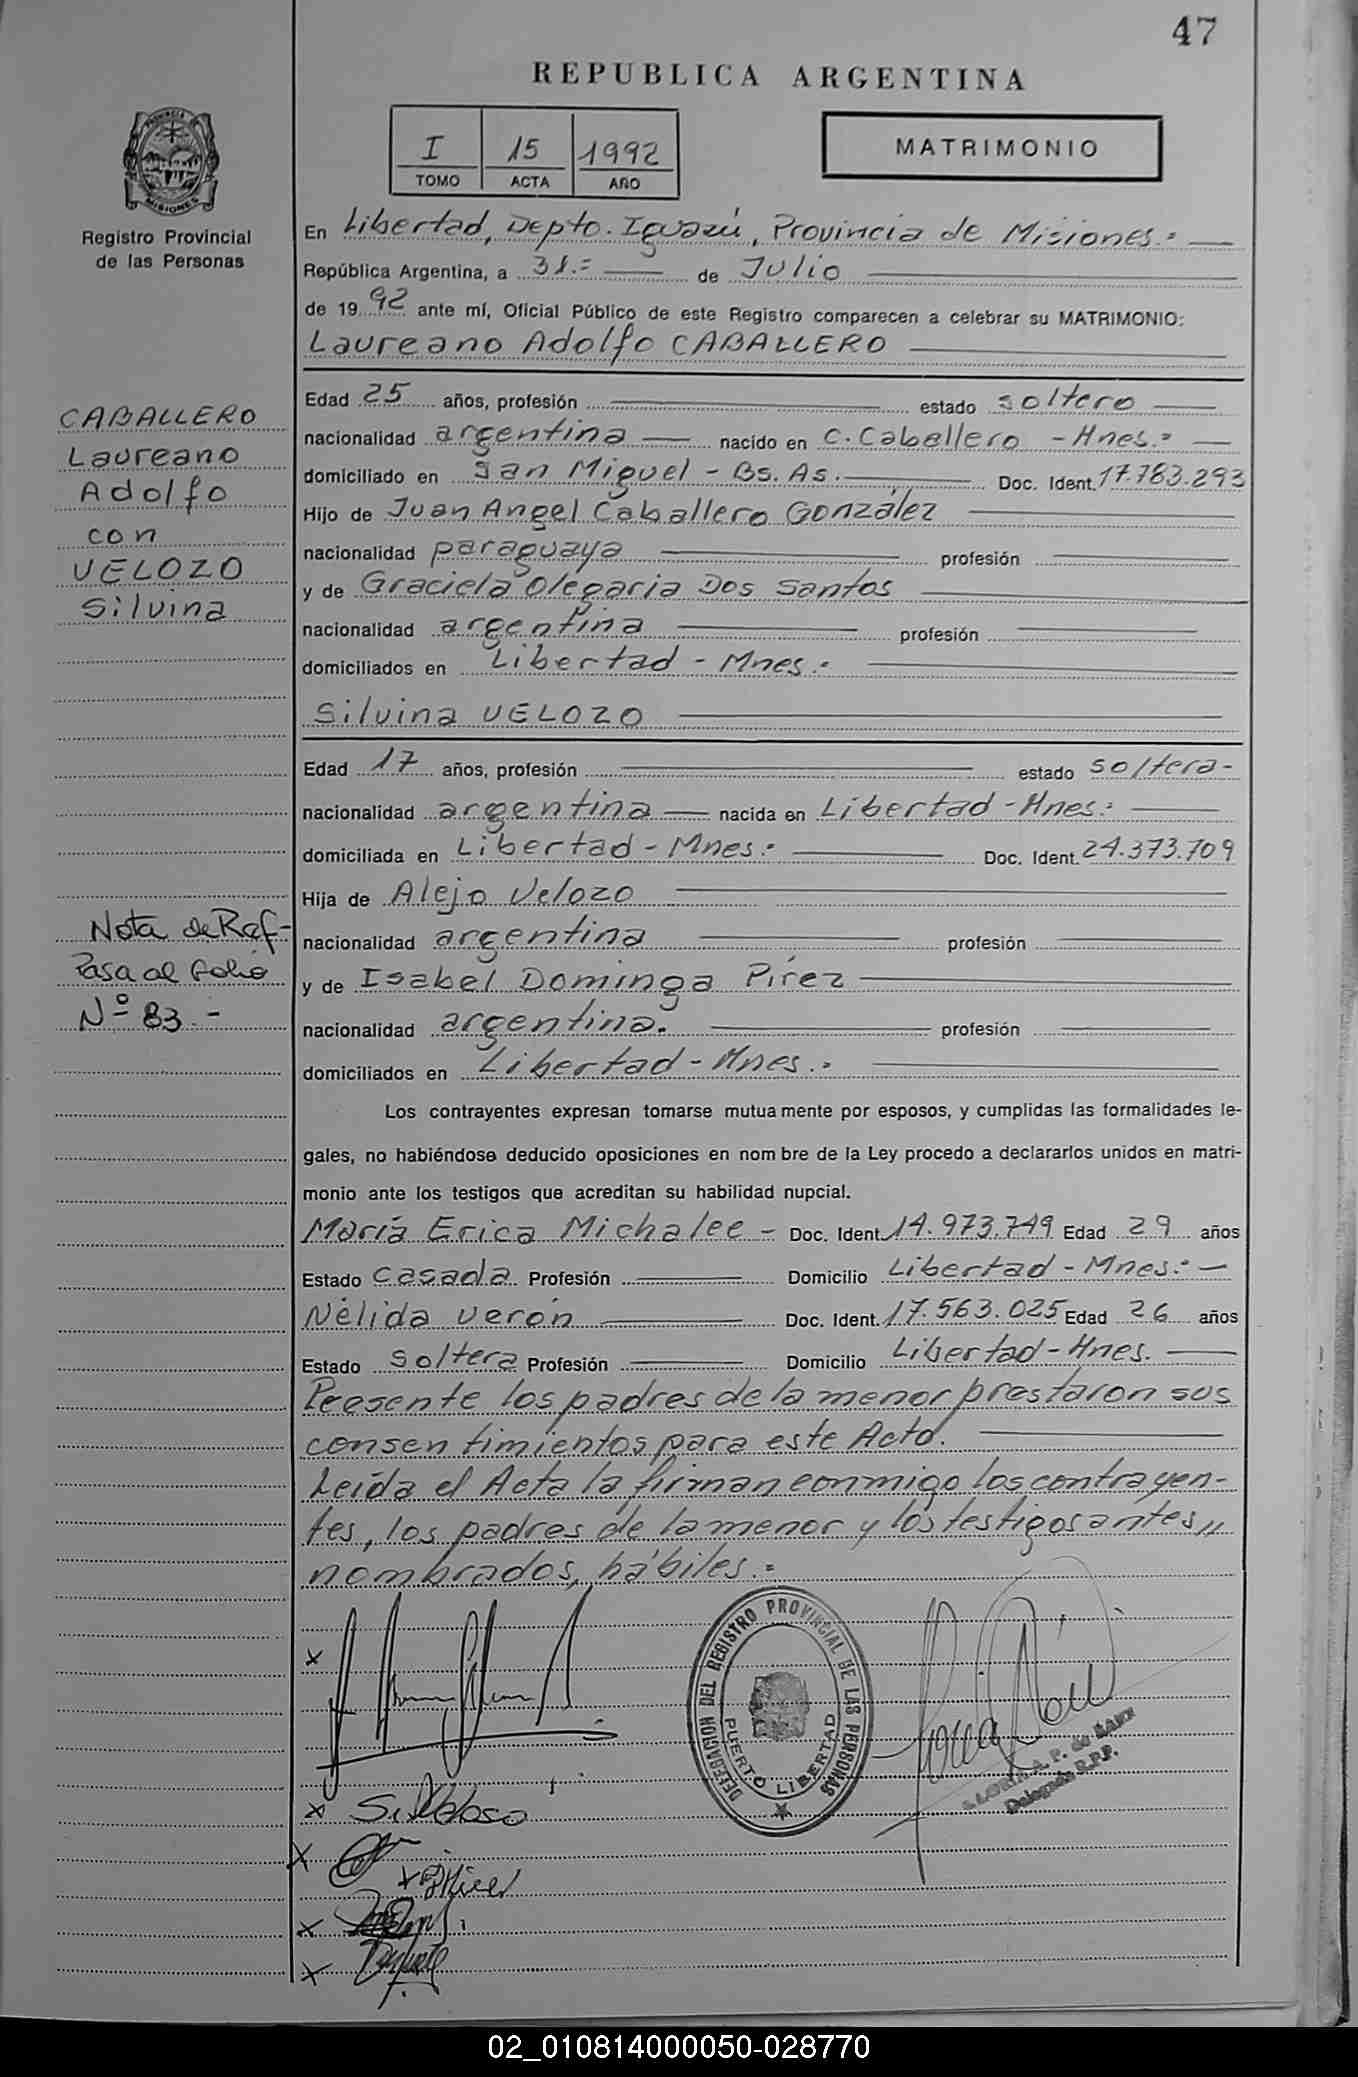 47
REPUBLICA ARGENTINA
I 15 1992
TOMO ACTA AÑO
MATRIMONIO
PROVINCIA DE MISIONES
Registro Provincial
de las Personas
En Libertad, Depto. Iguazú, Provincia de Misiones.=
República Argentina, a 31.= de Julio
de 1992 ante mí, Oficial Público de este Registro comparecen a celebrar su MATRIMONIO:
Laureano Adolfo CABALLERO
CABALLERO
Laureano
Adolfo
con
VELOZO
Silvina
Edad 25 años, profesión estado soltero
nacionalidad argentina nacido en C. Caballero - Mnes.=
domiciliado en San Miguel - Bs. As. Doc. Ident. 17.783.293
Hijo de Juan Angel Caballero González
nacionalidad paraguaya profesión
y de Graciela Olegaria Dos Santos
nacionalidad argentina profesión
domiciliados en Libertad - Mnes.=
Silvina VELOZO
Edad 17 años, profesión estado soltera-
nacionalidad argentina nacida en Libertad - Mnes.=
domiciliada en Libertad - Mnes.= Doc. Ident. 24.373.709
Hija de Alejo Velozo
nacionalidad argentina profesión
y de Isabel Dominga Pírez
nacionalidad argentina. profesión
domiciliados en Libertad - Mnes.=
Nota de Ref-
Pasa al folio
Nº 83.-
Los contrayentes expresan tomarse mutuamente por esposos, y cumplidas las formalidades le-
gales, no habiéndose deducido oposiciones en nombre de la Ley procedo a declararlos unidos en matri-
monio ante los testigos que acreditan su habilidad nupcial.
María Erica Michalee - Doc. Ident. 14.973.749 Edad 29 años
Estado casada Profesión Domicilio Libertad - Mnes.=
Nélida Verón Doc. Ident. 17.563.025 Edad 26 años
Estado soltera Profesión Domicilio Libertad - Mnes.
Presente los padres de la menor prestaron sus
consentimientos para este Acto.
Leída el Acta la firman conmigo los contrayen-
tes, los padres de la menor y los testigos antes,,
nombrados, hábiles.=
DELEGACION DEL REGISTRO PROVINCIAL DE LAS PERSONAS
PUERTO LIBERTAD
A. P. de
Delegada R.P.P.
02_010814000050-028770